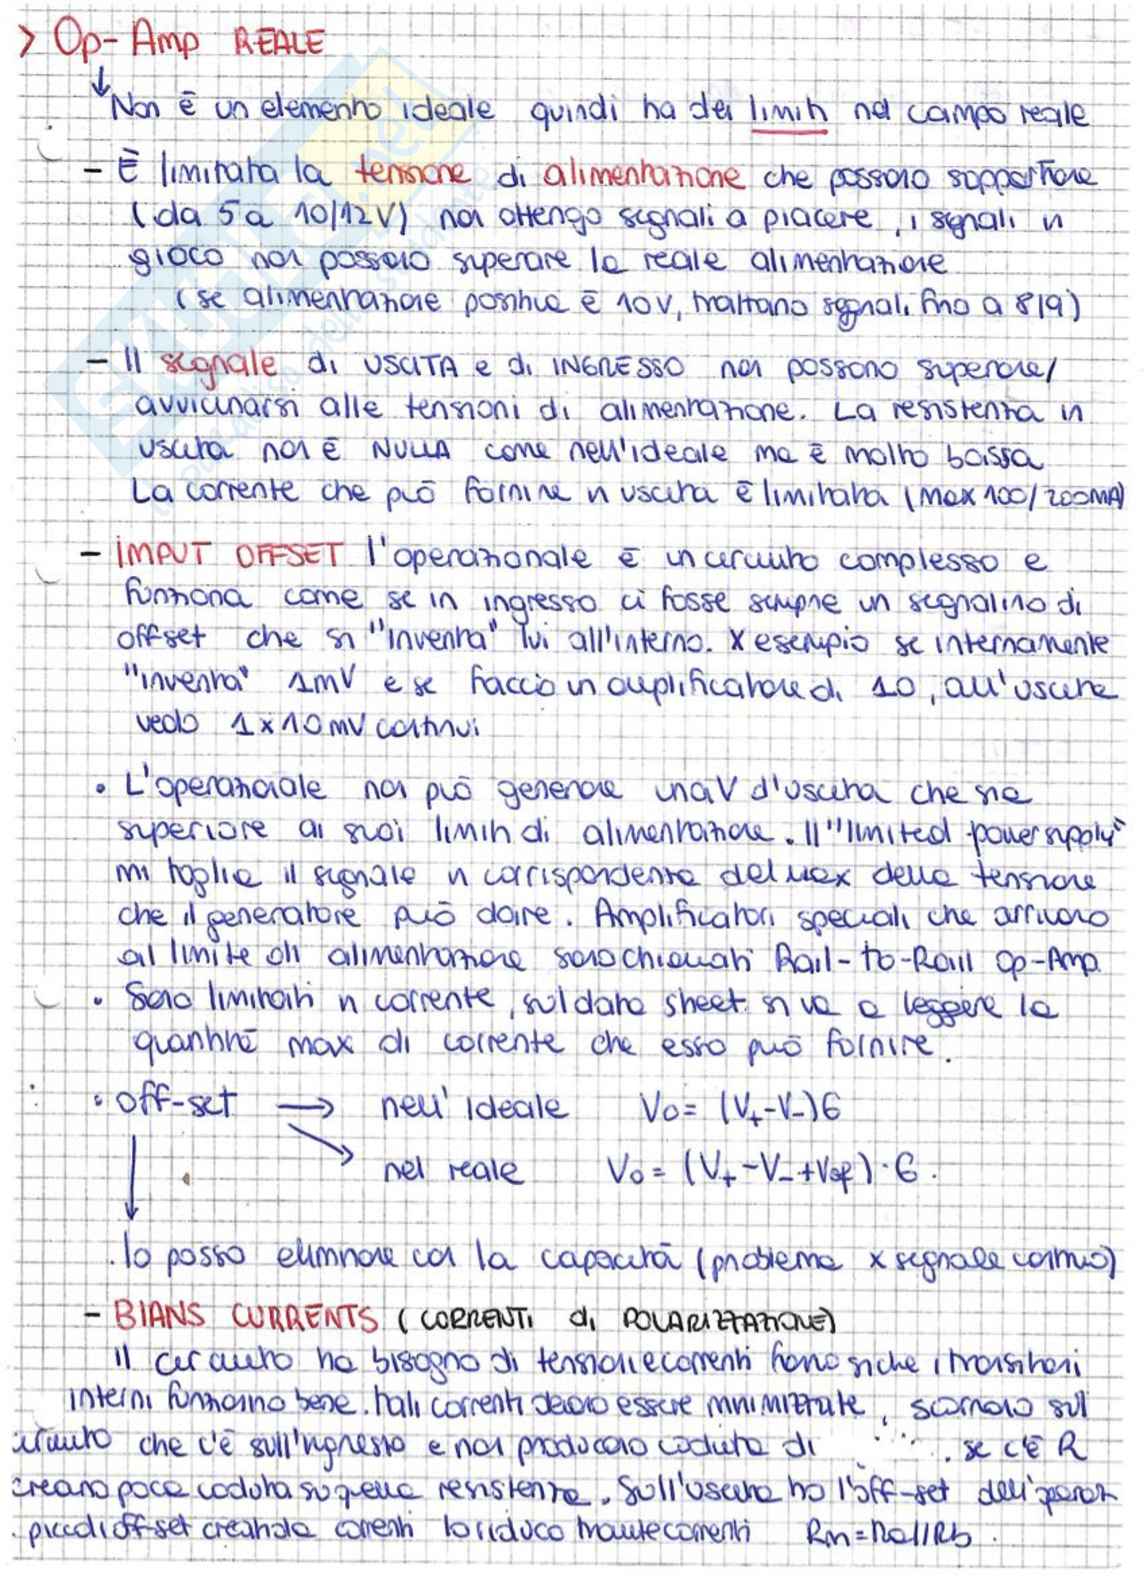 > Op-Amp REALE
Non è un elemento ideale quindi ha dei limiti nel campo reale
- È limitata la tensione di alimentazione che possono sopportare
(da 5 a 10/12V) non ottengo segnali a piacere, i segnali in
gioco non possono superare la reale alimentazione
(se alimentazione positiva è 10V, trattano segnali fino a 8/9)
- Il segnale di USCITA e di INGRESSO non possono superare/
avvicinarsi alle tensioni di alimentazione. La resistenza in
uscita non è NULLA come nell'ideale ma è molto bassa
La corrente che può fornire in uscita è limitata (max 100/200MA)
- IMPUT OFFSET l'operazionale è un circuito complesso e
funziona come se in ingresso ci fosse sempre un segnalino di
offset che si "inventa" lui all'interno. X esempio se internamente
"inventa" 1mV e se faccio un amplificatore di 10, all'uscita
vedo 1x10mV continui
• L'operazionale non può generare una V d'uscita che sia
superiore ai suoi limiti di alimentazione. Il "limited power supply"
mi taglia il segnale in corrispondenza del max della tensione
che il generatore può dare. Amplificatori speciali che arrivano
al limite di alimentazione sono chiamati Rail-to-Rail Op-Amp
• Sono limitati in corrente, sul data sheet si va a leggere la
quantità max di corrente che esso può fornire.
• off-set → nell'ideale Vo = (V+-V-)G
nel reale Vo = (V+-V-+Vof)·G.
lo posso eliminare con la capacità (problema x segnale continuo)
- BIANS CURRENTS (CORRENTI di POLARIZZAZIONE)
Il circuito ha bisogno di tensioni e correnti fanno si che i transistori
interni funzionino bene. tali correnti devono essere minimizzate, scorrono sul
circuito che c'è sull'ingresso e non producono caduta di se c'è R
creano poca caduta su quella resistenza. Sull'uscita ho l'off-set dell'operaz
piccoli offset correnti lo riduco tramite correnti Rm=Ra//Rb.